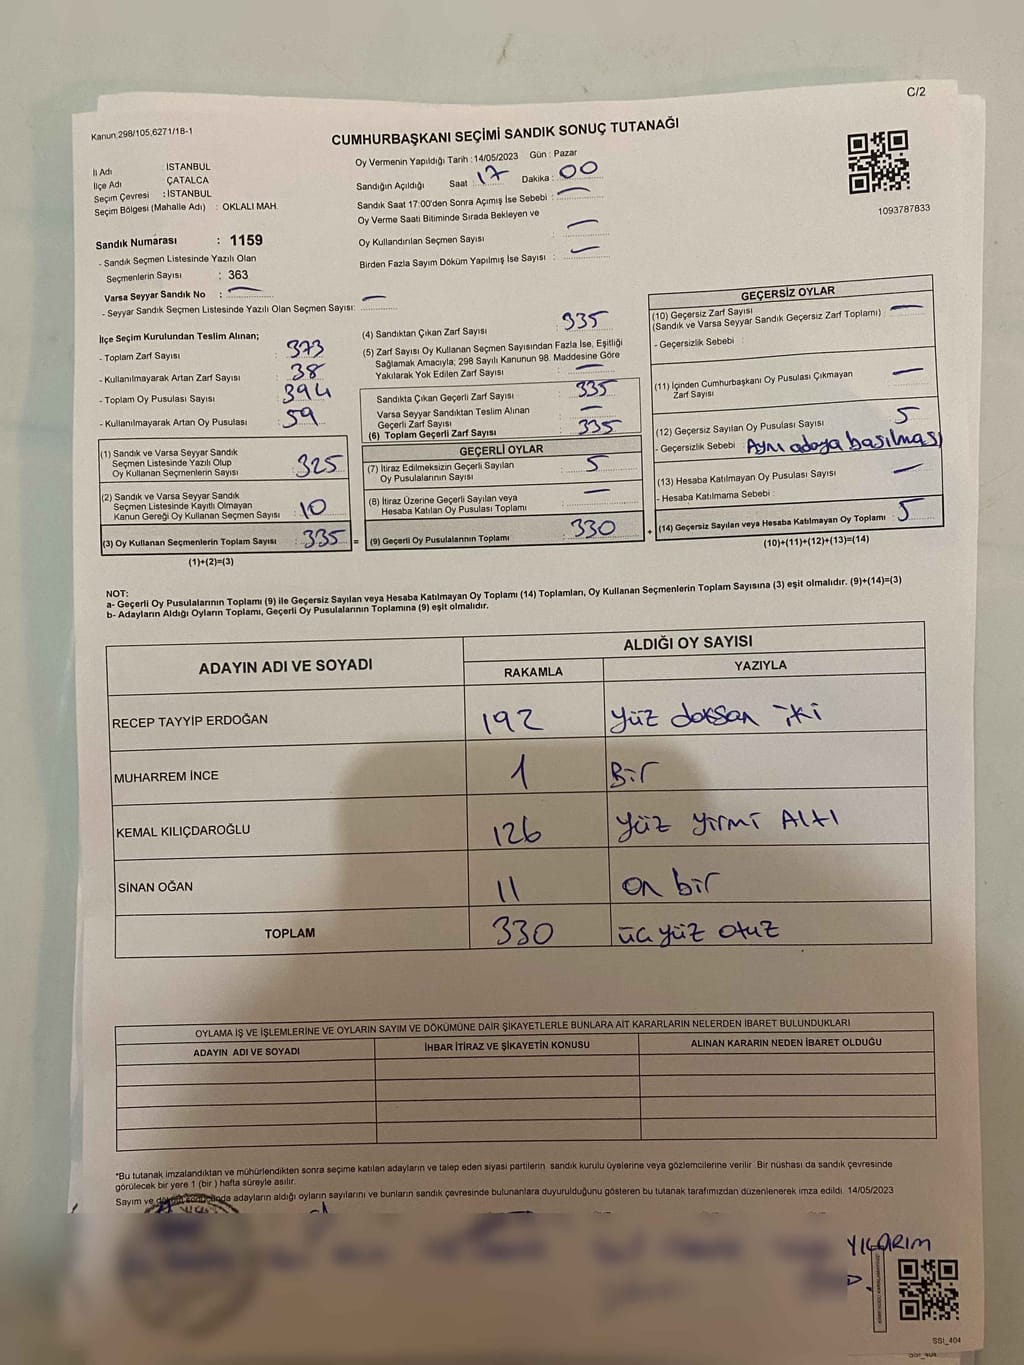 C/2
Kanun;298/105,6271/18-1
CUMHURBAŞKANI SEÇİMİ SANDIK SONUÇ TUTANAĞI
İl Adı : İSTANBUL
İlçe Adı : ÇATALCA
Seçim Çevresi : İSTANBUL
Seçim Bölgesi (Mahalle Adı) : OKLALI MAH.
Oy Vermenin Yapıldığı Tarih : 14/05/2023 Gün : Pazar
Sandığın Açıldığı Saat : 17 Dakika : 00
Sandık Saat 17:00'den Sonra Açımış İse Sebebi : —
Oy Verme Saati Bitiminde Sırada Bekleyen ve
Oy Kullandırılan Seçmen Sayısı : —
Birden Fazla Sayım Döküm Yapılmış İse Sayısı : —
1093787833
Sandık Numarası : 1159
- Sandık Seçmen Listesinde Yazılı Olan
Seçmenlerin Sayısı : 363
Varsa Seyyar Sandık No : —
- Seyyar Sandık Seçmen Listesinde Yazılı Olan Seçmen Sayısı: —
İlçe Seçim Kurulundan Teslim Alınan;
- Toplam Zarf Sayısı : 373
- Kullanılmayarak Artan Zarf Sayısı : 38
- Toplam Oy Pusulası Sayısı : 394
- Kullanılmayarak Artan Oy Pusulası : 59
(1) Sandık ve Varsa Seyyar Sandık
Seçmen Listesinde Yazılı Olup
Oy Kullanan Seçmenlerin Sayısı : 325
(2) Sandık ve Varsa Seyyar Sandık
Seçmen Listesinde Kayıtlı Olmayan
Kanun Gereği Oy Kullanan Seçmen Sayısı : 10
(3) Oy Kullanan Seçmenlerin Toplam Sayısı : 335 =
(1)+(2)=(3)
(4) Sandıktan Çıkan Zarf Sayısı : 335
(5) Zarf Sayısı Oy Kullanan Seçmen Sayısından Fazla İse, Eşitliği
Sağlamak Amacıyla; 298 Sayılı Kanunun 98. Maddesine Göre
Yakılarak Yok Edilen Zarf Sayısı : —
Sandıkta Çıkan Geçerli Zarf Sayısı : 335
Varsa Seyyar Sandıktan Teslim Alınan
Geçerli Zarf Sayısı : —
(6) Toplam Geçerli Zarf Sayısı : 335
GEÇERLİ OYLAR
(7) İtiraz Edilmeksizin Geçerli Sayılan
Oy Pusulalarının Sayısı : 5
(8) İtiraz Üzerine Geçerli Sayılan veya
Hesaba Katılan Oy Pusulası Toplamı : —
(9) Geçerli Oy Pusulalarının Toplamı : 330 +
GEÇERSİZ OYLAR
(10) Geçersiz Zarf Sayısı
(Sandık ve Varsa Seyyar Sandık Geçersiz Zarf Toplamı) : —
- Geçersizlik Sebebi :
(11) İçinden Cumhurbaşkanı Oy Pusulası Çıkmayan
Zarf Sayısı : —
(12) Geçersiz Sayılan Oy Pusulası Sayısı : 5
- Geçersizlik Sebebi : Aynı adaya basılması
(13) Hesaba Katılmayan Oy Pusulası Sayısı : —
- Hesaba Katılmama Sebebi :
(14) Geçersiz Sayılan veya Hesaba Katılmayan Oy Toplamı : 5
(10)+(11)+(12)+(13)=(14)
NOT:
a- Geçerli Oy Pusulalarının Toplamı (9) ile Geçersiz Sayılan veya Hesaba Katılmayan Oy Toplamı (14) Toplamları, Oy Kullanan Seçmenlerin Toplam Sayısına (3) eşit olmalıdır. (9)+(14)=(3)
b- Adayların Aldığı Oyların Toplamı, Geçerli Oy Pusulalarının Toplamına (9) eşit olmalıdır.
ADAYIN ADI VE SOYADI
ALDIĞI OY SAYISI
RAKAMLA YAZIYLA
RECEP TAYYİP ERDOĞAN 192 Yüz doksan iki
MUHARREM İNCE 1 Bir
KEMAL KILIÇDAROĞLU 126 Yüz Yirmi Altı
SİNAN OĞAN 11 on bir
TOPLAM 330 üç yüz otuz
OYLAMA İŞ VE İŞLEMLERİNE VE OYLARIN SAYIM VE DÖKÜMÜNE DAİR ŞİKAYETLERLE BUNLARA AİT KARARLARIN NELERDEN İBARET BULUNDUKLARI
ADAYIN ADI VE SOYADI İHBAR İTİRAZ VE ŞİKAYETİN KONUSU ALINAN KARARIN NEDEN İBARET OLDUĞU
*Bu tutanak imzalandıktan ve mühürlendikten sonra seçime katılan adayların ve talep eden siyasi partilerin sandık kurulu üyelerine veya gözlemcilerine verilir. Bir nüshası da sandık çevresinde
görülecek bir yere 1 (bir ) hafta süreyle asılır.
Sayım ve döküm sonucunda adayların aldığı oyların sayılarını ve bunların sandık çevresinde bulunanlara duyurulduğunu gösteren bu tutanak tarafımızdan düzenlenerek imza edildi. 14/05/2023
YILDIRIM
SSİ_404